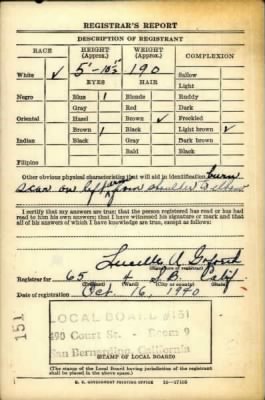 REGISTRAR'S REPORT
DESCRIPTION OF REGISTRANT
RACE HEIGHT (Approx.) WEIGHT (Approx.) COMPLEXION
5'-10½ 190
White ✓ Sallow
EYES HAIR Light
Negro Blue 1 Blonde Ruddy
Gray Red Dark
Oriental Hazel Brown ✓ Freckled
Brown 1 Black Light brown ✓
Indian Black Gray Dark brown
Bald Black
Filipino
Other obvious physical characteristics that will aid in identification burn
scar on left arm from shoulder to elbow
I certify that my answers are true; that the person registered has read or has had
read to him his own answers; that I have witnessed his signature or mark and that
all of his answers of which I have knowledge are true, except as follows:
Lucille A.
Registrar for 65 4 S.B. Calif
(Precinct) (Ward) (City or county) (State)
Date of registration Oct. 16, 1940
151
LOCAL BOARD #151
490 Court St. - Room 9
San Bernardino, California
(STAMP OF LOCAL BOARD)
(The stamp of the Local Board having jurisdiction of the registrant
shall be placed in the above space.)
U. S. GOVERNMENT PRINTING OFFICE 16-17105